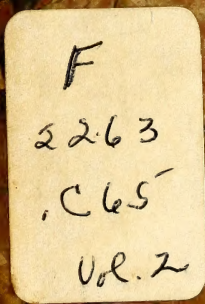 F
2263
.C65
Vol. 2